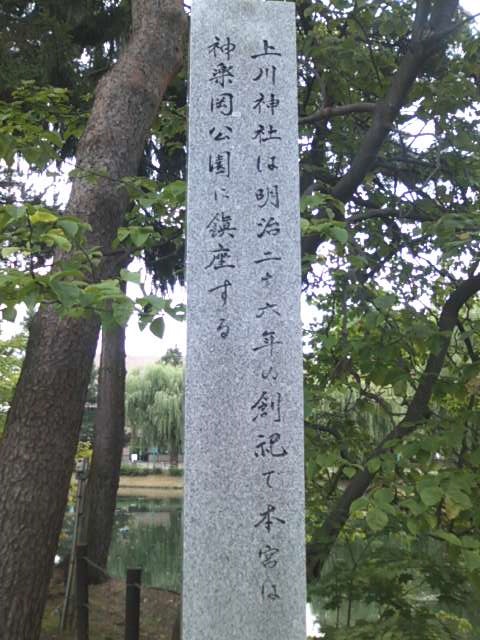 上川神社は明治二十六年の創祀で本宮は
神楽岡公園に鎮座する